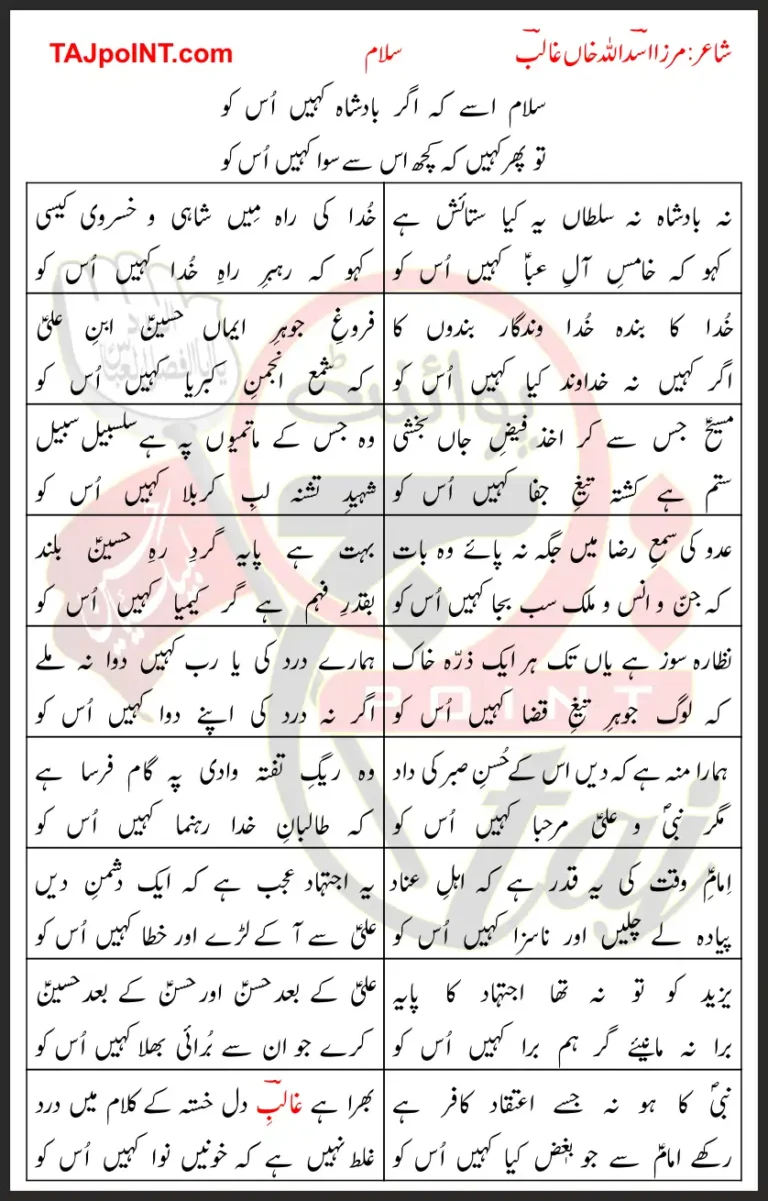 شاعر: مرزا اسدؔ اللہ خاں غالبؔ
سلام
TAJpoINT.com
سلام اسے کہ اگر بادشاہ کہیں اُس کو
تو پھر کہیں کہ کچھ اس سے سوا کہیں اُس کو
نہ بادشاہ نہ سلطاں یہ کیا ستائش ہے
کہو کہ خامسِ آلِ عباؑ کہیں اُس کو
خُدا کی راہ مِیں شاہی و خسروی کیسی
کہو کہ رہبرِ راہِ خُدا کہیں اُس کو
خُدا کا بندہ خُدا وندگار بندوں کا
اگر کہیں نہ خداوند کیا کہیں اُس کو
فروغِ جوہرِ ایماں حسینؑ ابنِ علیؑ
کہ شمعِ انجمنِ کبریا کہیں اُس کو
مسیحؑ جس سے کر اخذ فیضِ جاں بخشی
ستم ہے کشتہ تیغِ جفا کہیں اُس کو
وہ جس کے ماتمیوں پہ ہے سلسبیل سبیل
شہیدِ تشنہ لبِ کربلا کہیں اُس کو
عدو کی سمعِ رضا میں جگہ نہ پائے وہ بات
کہ جنّ و انس و ملک سب بجا کہیں اُس کو
بہت ہے پایہ گردِ رہِ حسینؑ بلند
بقدرِ فہم ہے گر کیمیا کہیں اُس کو
نظارہ سوز ہے یاں تک ہر ایک ذرّہ خاک
کہ لوگ جوہرِ تیغِ قضا کہیں اُس کو
ہمارے درد کی یا رب کہیں دوا نہ ملے
اگر نہ درد کی اپنے دوا کہیں اُس کو
ہمارا منہ ہے کہ دیں اس کے حُسنِ صبر کی داد
مگر نبیؐ و علیؑ مرحبا کہیں اُس کو
وہ ریگِ تفتہ وادی پہ گام فرسا ہے
کہ طالبانِ خدا رہنما کہیں اُس کو
اِمامِؑ وقت کی یہ قدر ہے کہ اہلِ عناد
پیادہ لے چلیں اور ناسزا کہیں اُس کو
یہ اجتہاد عجب ہے کہ ایک دشمنِ دیں
علیؑ سے آ کے لڑے اور خطا کہیں اُس کو
یزید کو تو نہ تھا اجتہاد کا پایہ
برا نہ مانیئے گر ہم برا کہیں اُس کو
علیؑ کے بعد حسنؑ اور حسنؑ کے بعد حسینؑ
کرے جو ان سے بُرائی بھلا کہیں اُس کو
نبیؐ کا ہو نہ جسے اعتقاد کافر ہے
رکھے امامؑ سے جو بغض کیا کہیں اُس کو
بھرا ہے غالبؔ دل خستہ کے کلام میں درد
غلط نہیں ہے کہ خونیں نوا کہیں اُس کو
POINT
taj